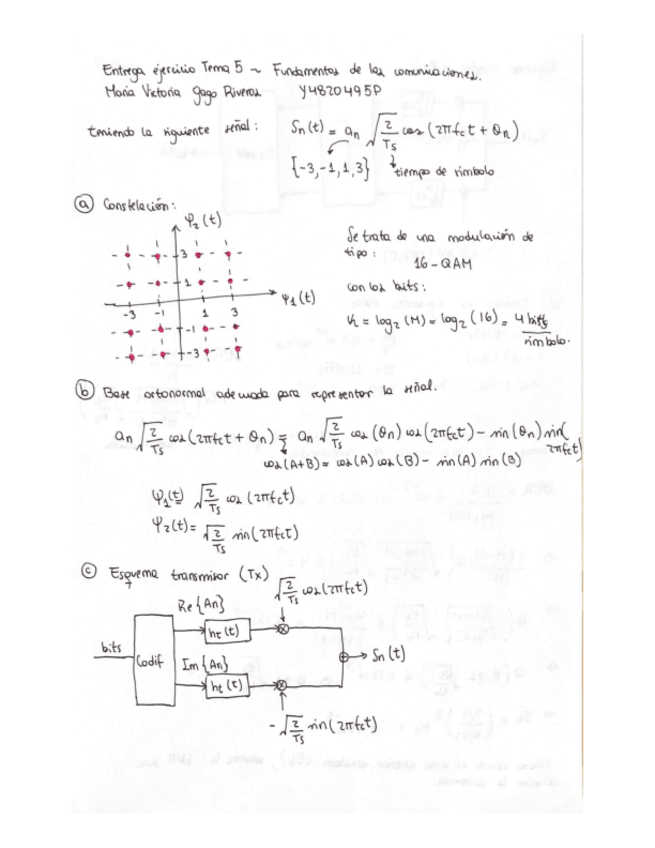 Entrega ejercicio Tema 5 ~ Fundamentos de las comunicaciones.
María Victoria Gago Riveros Y4820495P
teniendo la siguiente señal: Sn(t) = an √(2/Ts) cos(2πfct + θn)
{-3,-1,1,3} tiempo de símbolo
ⓐ Constelación:
Ψ2(t)
Se trata de una modulación de
tipo:
16-QAM
con los bits:
K = log2(M) = log2(16) = 4 bits/símbolo.
3
1
Ψ1(t)
-3 -1 1 3
-1
-3
ⓑ Base ortonormal adecuada para representar la señal.
an √(2/Ts) cos(2πfct + θn) = an √(2/Ts) cos(θn) cos(2πfct) - sin(θn) sin(2πfct)
cos(A+B) = cos(A) cos(B) - sin(A) sin(B)
Ψ1(t) = √(2/Ts) cos(2πfct)
Ψ2(t) = √(2/Ts) sin(2πfct)
ⓒ Esquema transmisor (Tx)
√(2/Ts) cos(2πfct)
Re{An}
ht(t)
bits
Codif
Sn(t)
Im{An}
ht(t)
- √(2/Ts) sin(2πfct)